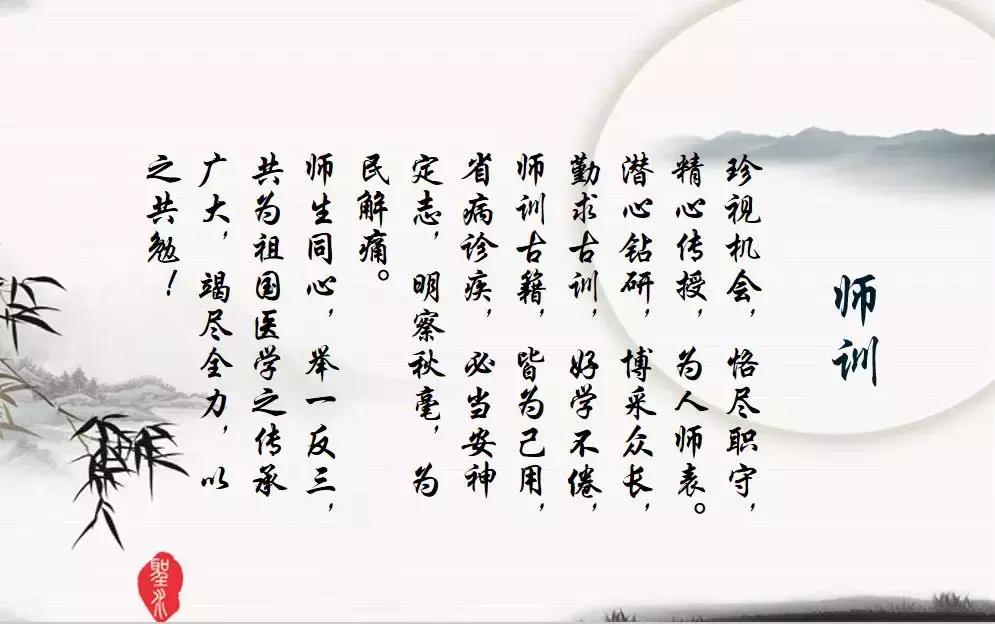 师训
珍视机会，恪尽职守，
精心传授，为人师表。
潜心钻研，博采众长，
勤求古训，好学不倦，
师训古籍，皆为己用，
省病诊疾，必当安神
定志，明察秋毫，为
民解痛。
师生同心，举一反三，
共为祖国医学之传承
广大，竭尽全力，以
之共勉！
聖水